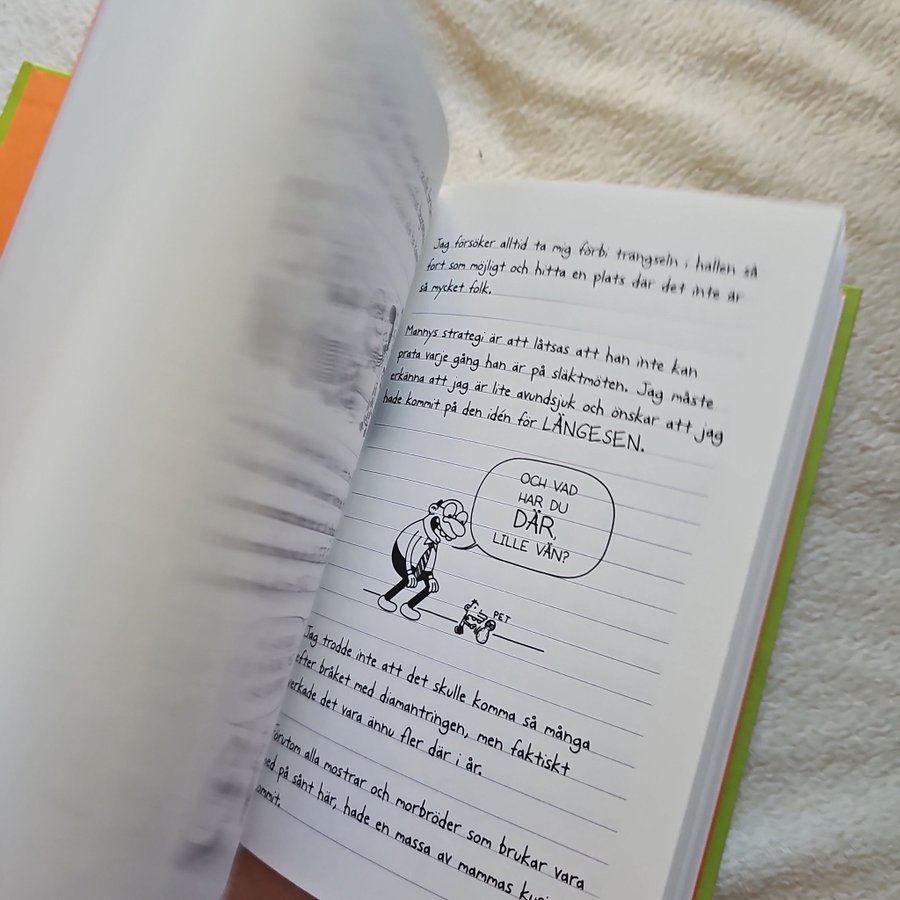 Jag försöker alltid ta mig förbi trängseln i hallen så
fort som möjligt och hitta en plats där det inte är
så mycket folk.
Mannys strategi är att låtsas att han inte kan
prata varje gång han är på släktmöten. Jag måste
erkänna att jag är lite avundsjuk och önskar att jag
hade kommit på den idén för LÄNGESEN.
OCH VAD
HAR DU
DÄR,
LILLE VÄN?
PET
Jag trodde inte att det skulle komma så många
efter bråket med diamantringen, men faktiskt
verkade det vara ännu fler där i år.
Förutom alla mostrar och morbröder som brukar vara
med på sånt här, hade en massa av mammas